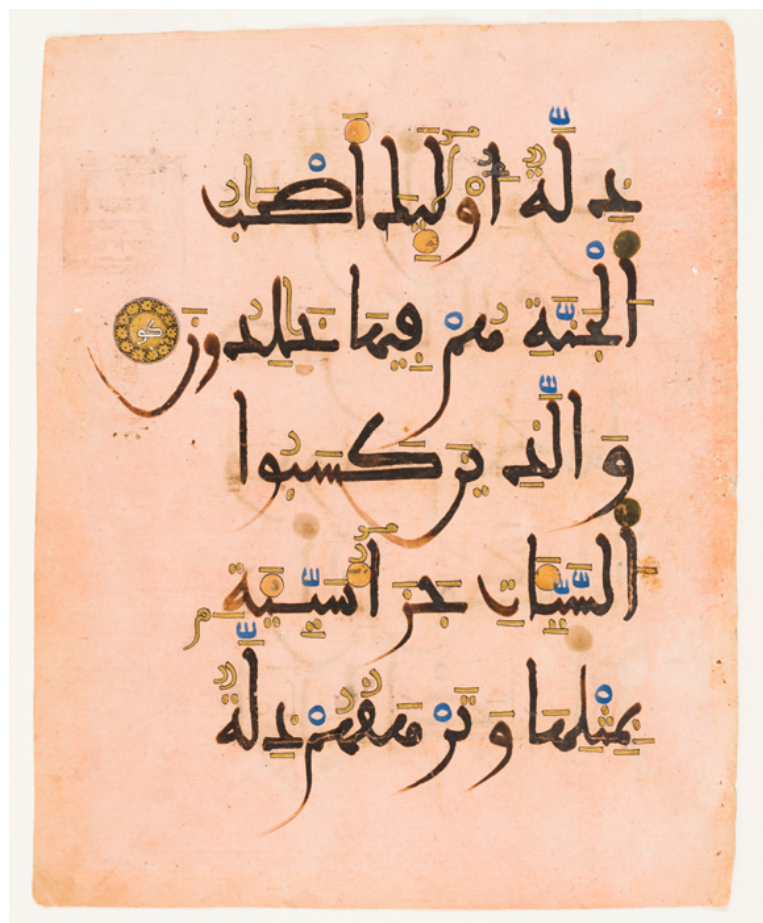 ذِلَّةٌ أُوْلَٰٓئِكَ أَصْحَٰبُ
اُ۬لْجَنَّةِ هُمْ فِيهَا خَٰلِدُونَ كو
وَالَّذِينَ كَسَبُوا
السَّيِّـَٔاتِ جَزَآءُ سَيِّئَةٍ
بِمِثْلِهَا وَتَرْهَقُهُمْ ذِلَّةٌ